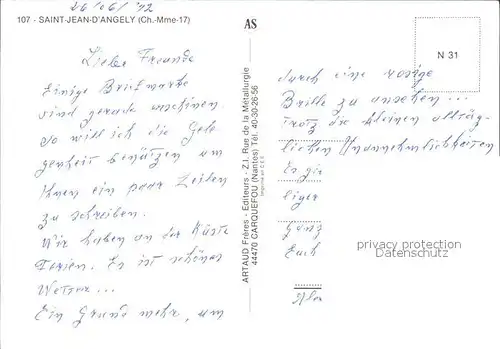 26/06/92
107 - SAINT-JEAN-D'ANGELY (Ch.-Mme-17)
Liebe Freunde
Einige Briefmarke
sind gerade erschienen
so will ich die Gele
genheit benützen um
Ihnen ein paar Zeilen
zu schreiben.
Wir haben an der Küste
Ferien. Es ist schönes
Wetter...
Ein Grund mehr, um
AS
ARTAUD Frères - Editeurs - Z.I. Rue de la Métallurgie
44470 CARQUEFOU (Nantes) Tél. 40-30-26-56
N 31
durch eine rosige
Brille zu ansehen...
Trotz die kleinen alltäg-
lichen Unannehmlichkeiten
Ganz
Euch
privacy protection
Datenschutz